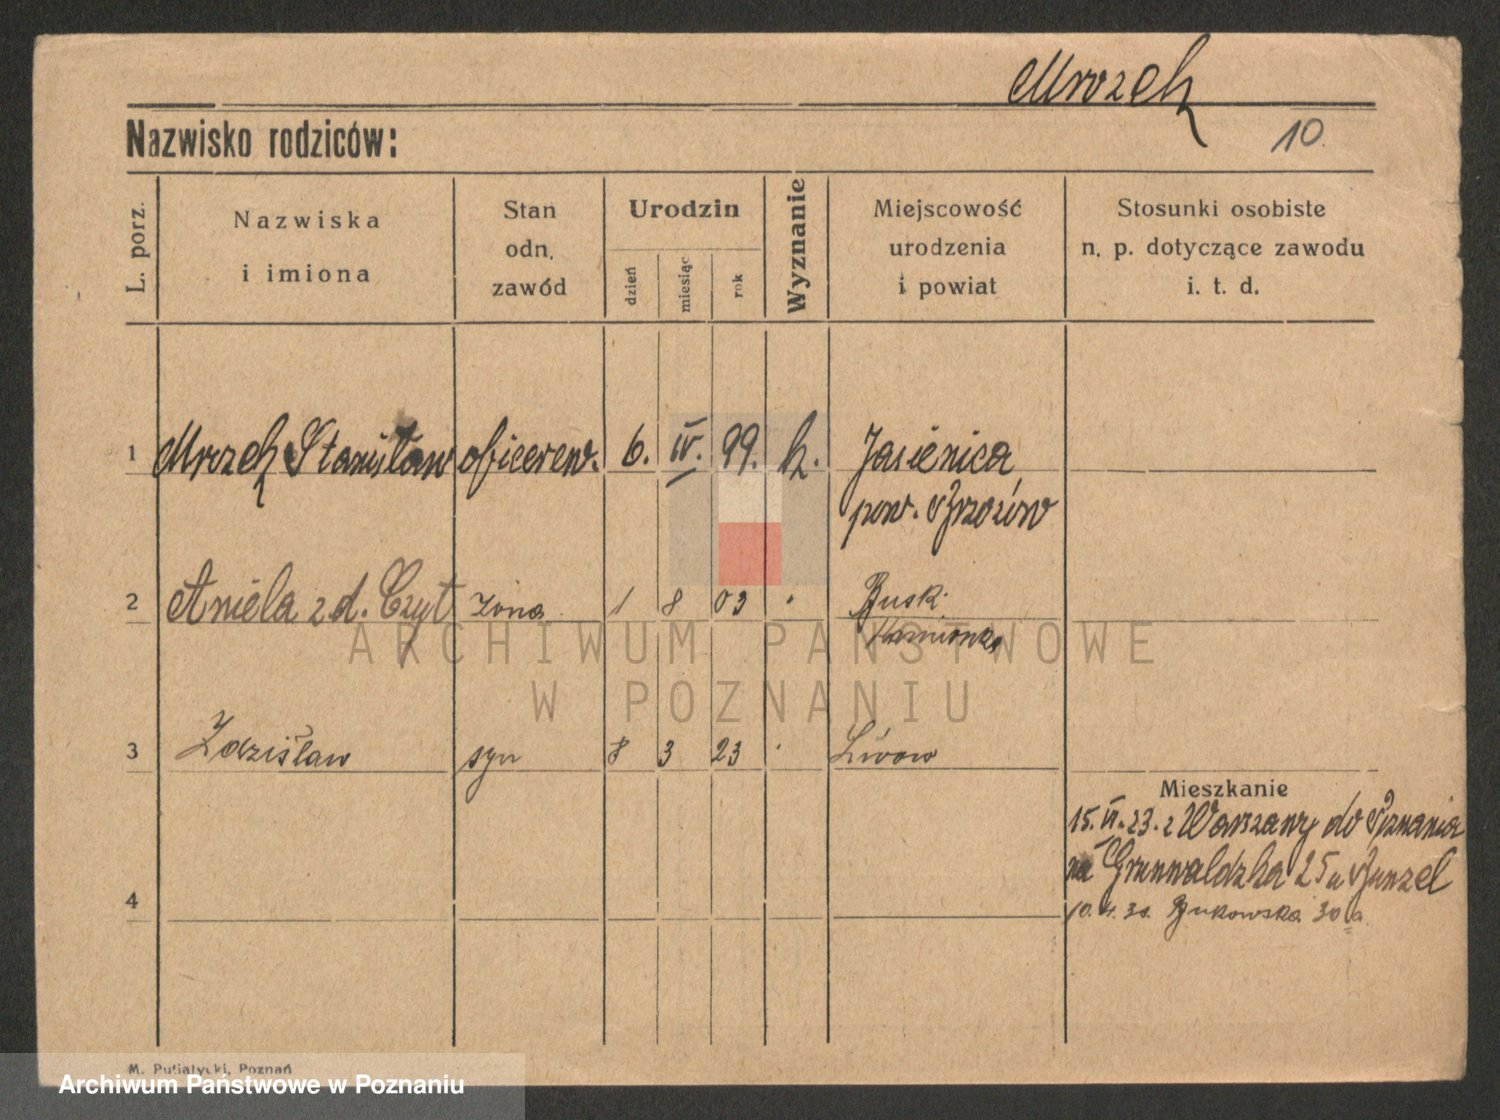 Mrozek
10.
Nazwisko rodziców:
L. porz.
Nazwiska
i imiona
Stan
odn.
zawód
Urodzin
dzień
miesiąc
rok
Wyznanie
Miejscowość
urodzenia
i powiat
Stosunki osobiste
n. p. dotyczące zawodu
i. t. d.
1 Mrozek Stanisław oficer 6. IV. 99. k. Jasienica
pow. Brzozów
2 Aniela z d. Czyt żona 1 8 03 Busk
Kamionka
3 Zdzisław syn 8 3 23 Lwow
Mieszkanie
15. VI. 23. z Warszawy do Poznania
na Grunwaldzka 25
4
10. 4. 30. Bukowska 30a.
M. Putiatycki, Poznań
ARCHIWUM PAŃSTWOWE
W POZNANIU
Archiwum Państwowe w Poznaniu